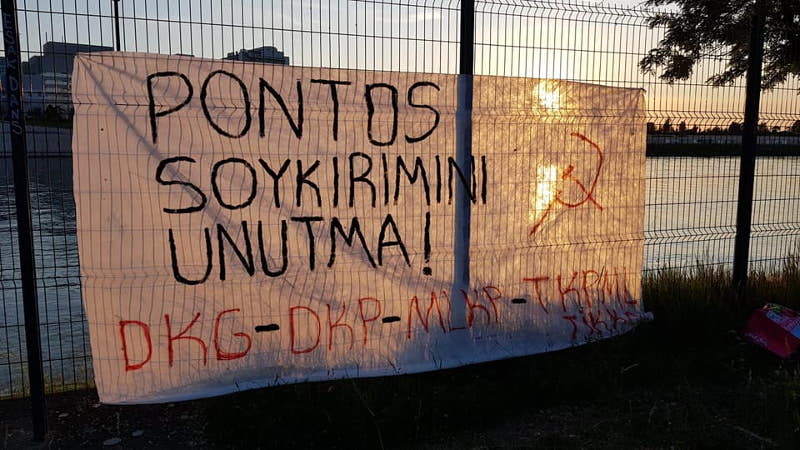 PONTOS
SOYKIRIMINI
UNUTMA!
DKG-DKP-MLKP-TKPML